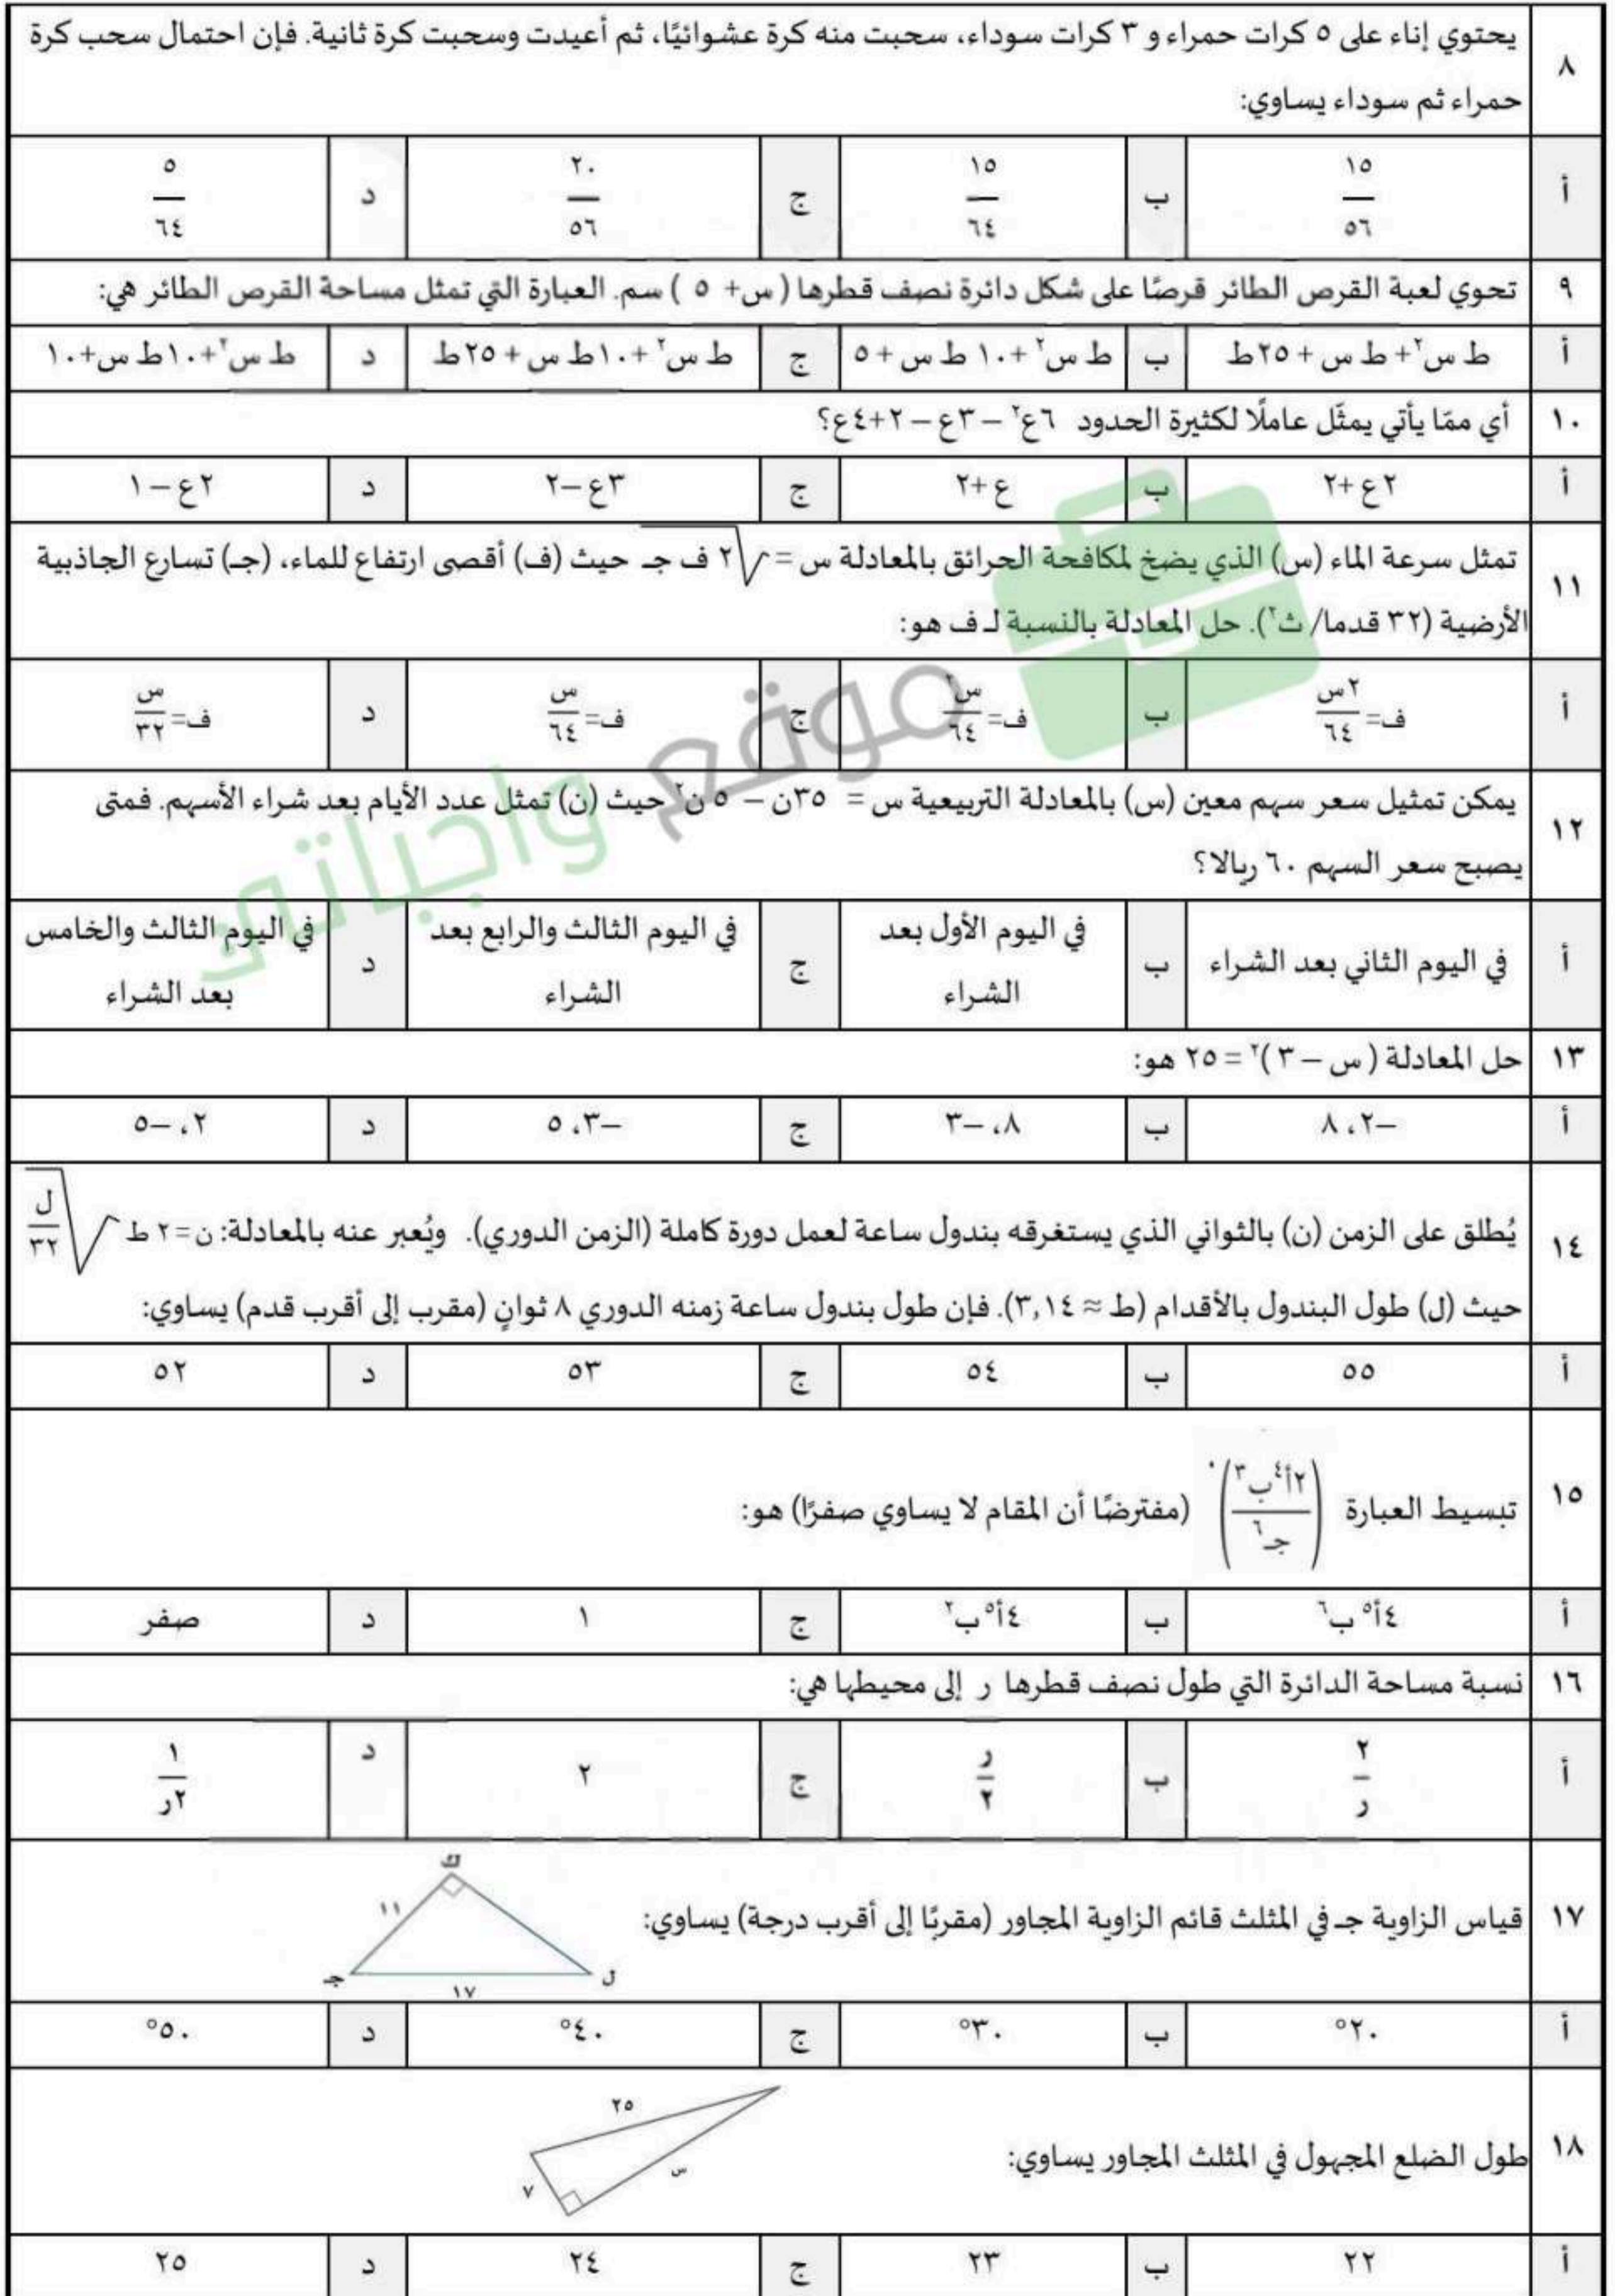 ٨ يحتوي إناء على ٥ كرات حمراء و ٣ كرات سوداء، سحبت منه كرة عشوائيًا، ثم أعيدت وسحبت كرة ثانية. فإن احتمال سحب كرة
حمراء ثم سوداء يساوي:
أ ١٥/٥٦ ب ١٥/٦٤ ج ٢٠/٥٦ د ٥/٦٤
٩ تحوي لعبة القرص الطائر قرصًا على شكل دائرة نصف قطرها ( س+ ٥ ) سم. العبارة التي تمثل مساحة القرص الطائر هي:
أ ط س²+ ط س + ٢٥ط ب ط س² +١٠ ط س + ٥ ج ط س² +١٠ط س + ٢٥ط د ط س²+١٠ط س+١٠
١٠ أي ممّا يأتي يمثّل عاملًا لكثيرة الحدود ٦ع² – ٣ع – ٢+٤ع؟
أ ٢ع +٢ ب ع +٢ ج ٣ع –٢ د ٢ع – ١
١١ تمثل سرعة الماء (س) الذي يضخ لمكافحة الحرائق بالمعادلة س = √٢ ف جـ حيث (ف) أقصى ارتفاع للماء، (جـ) تسارع الجاذبية
الأرضية (٣٢ قدما/ ث²). حل المعادلة بالنسبة لـ ف هو:
أ ف= ٢س/٦٤ ب ف= س²/٦٤ ج ف= س/٦٤ د ف= س/٣٢
١٢ يمكن تمثيل سعر سهم معين (س) بالمعادلة التربيعية س = ٣٥ن – ٥ ن² حيث (ن) تمثل عدد الأيام بعد شراء الأسهم. فمتى
يصبح سعر السهم ٦٠ ريالا؟
أ في اليوم الثاني بعد الشراء ب في اليوم الأول بعد الشراء ج في اليوم الثالث والرابع بعد الشراء د في اليوم الثالث والخامس بعد الشراء
١٣ حل المعادلة ( س – ٣ )² = ٢٥ هو:
أ –٢، ٨ ب ٨، –٣ ج –٣، ٥ د ٢، –٥
١٤ يُطلق على الزمن (ن) بالثواني الذي يستغرقه بندول ساعة لعمل دورة كاملة (الزمن الدوري). ويُعبر عنه بالمعادلة: ن = ٢ ط √ل/٣٢
حيث (ل) طول البندول بالأقدام (ط ≈ ٣,١٤). فإن طول بندول ساعة زمنه الدوري ٨ ثوانٍ (مقرب إلى أقرب قدم) يساوي:
أ ٥٥ ب ٥٤ ج ٥٣ د ٥٢
١٥ تبسيط العبارة (٢أ⁴ب³/جـ⁶)⁰ (مفترضًا أن المقام لا يساوي صفرًا) هو:
أ ٤أ⁵ ب⁶ ب ٤أ⁵ ب² ج ١ د صفر
١٦ نسبة مساحة الدائرة التي طول نصف قطرها ر إلى محيطها هي:
أ ٢/ر ب ر/٢ ج ٢ د ١/٢ر
ك
١١
١٧ قياس الزاوية جـ في المثلث قائم الزاوية المجاور (مقربًا إلى أقرب درجة) يساوي:
جـ ل
١٧
أ ٢٠° ب ٣٠° ج ٤٠° د ٥٠°
٢٥
١٨ طول الضلع المجهول في المثلث المجاور يساوي:
س
٧
أ ٢٢ ب ٢٣ ج ٢٤ د ٢٥
موقع واجباتي